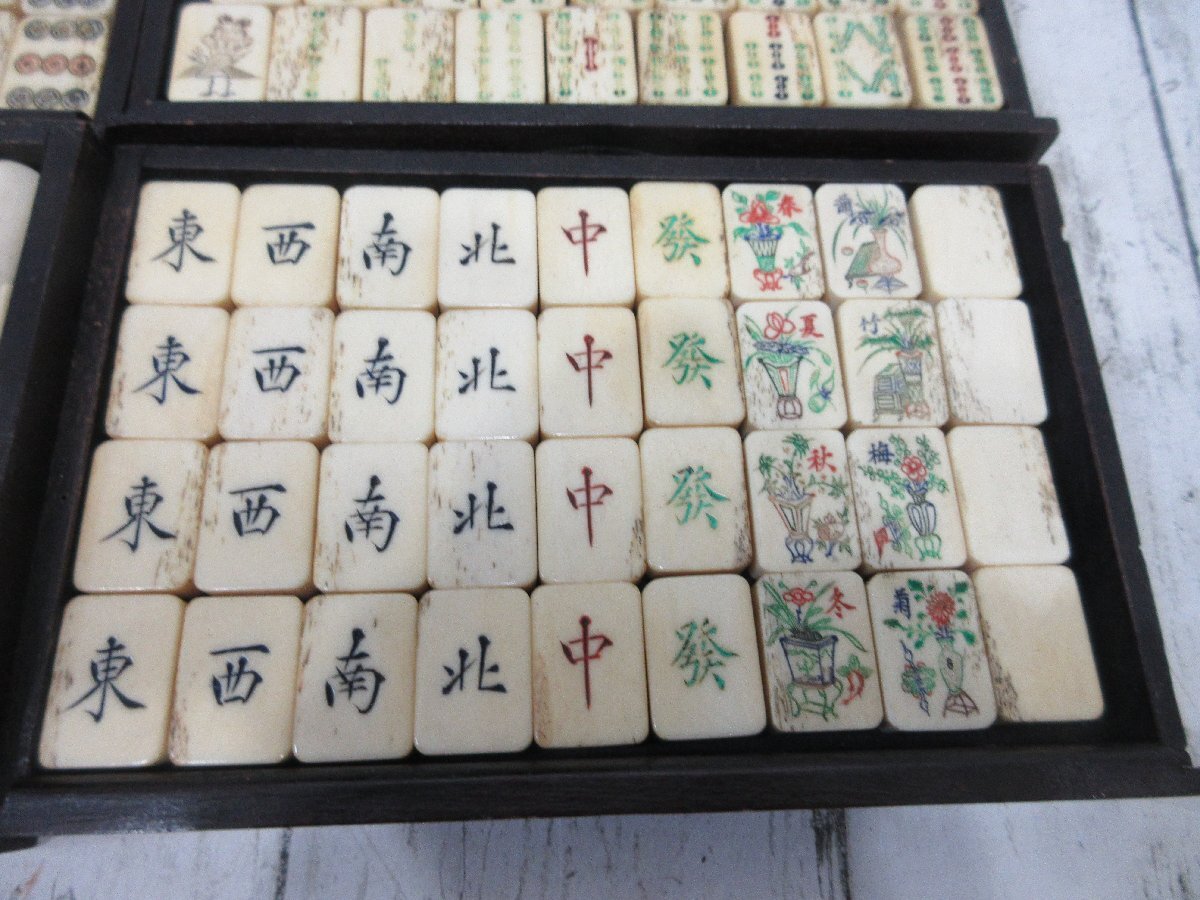 東 西 南 北 中 發 春 蘭
東 西 南 北 中 發 夏 竹
東 西 南 北 中 發 秋 梅
東 西 南 北 中 發 冬 菊